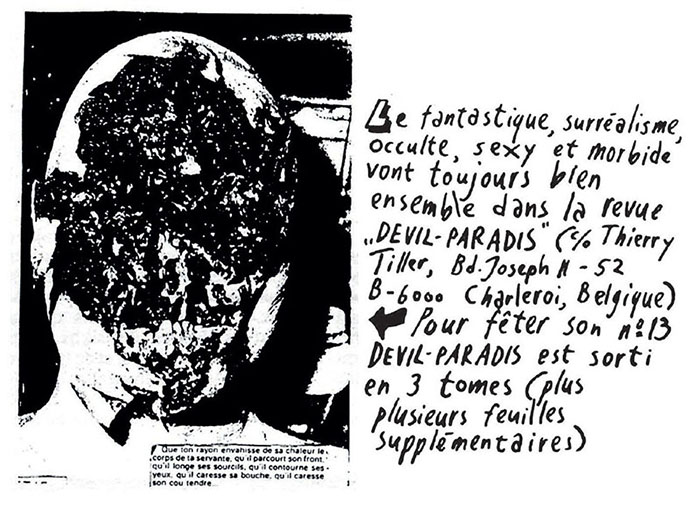 Le fantastique, surréalisme,
occulte, sexy et morbide
vont toujours bien
ensemble dans la revue
„DEVIL-PARADIS" (c/o Thierry
Tiller, Bd. Joseph II - 52
B-6000 Charleroi, Belgique)
Pour fêter son nº13
DEVIL-PARADIS est sorti
en 3 tomes (plus
plusieurs feuilles
supplémentaires)
Que ton rayon envahisse de sa chaleur le
corps de ta servante, qu'il parcourt son front,
qu'il longe ses sourcils, qu'il contourne ses
yeux, qu'il caresse sa bouche, qu'il caresse
son cou tendre...